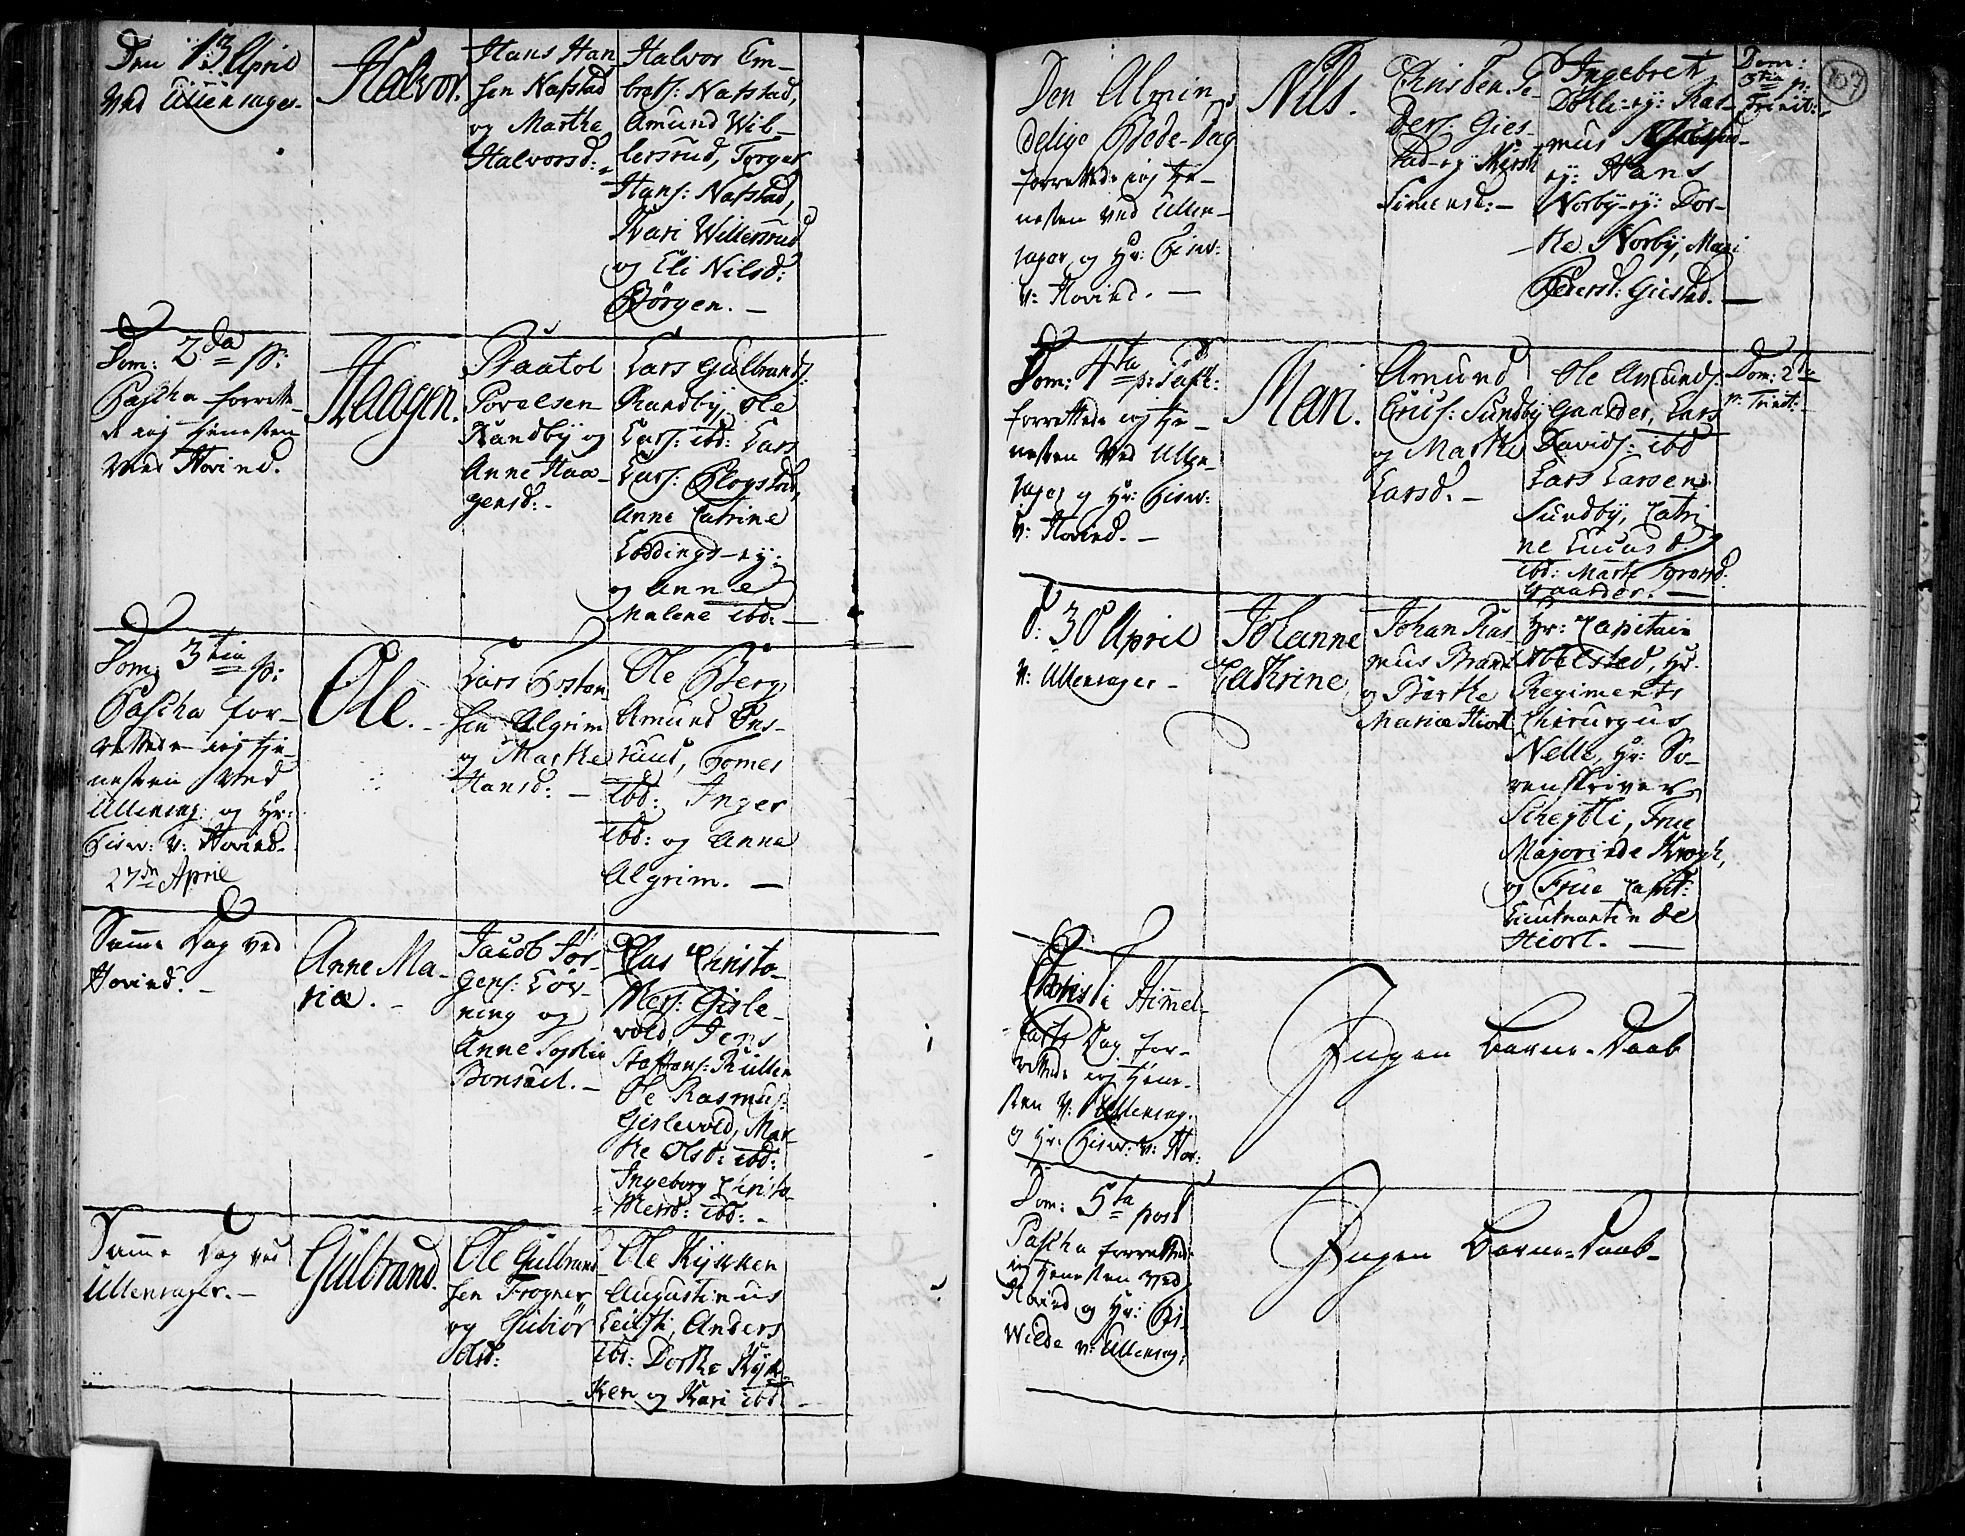 Den 13 April
Ved Ullensager.
Halvor.
Hans Han
sen Nafstad
og Marthe
Halvorsd:
Halvor Em-
brets: Nafstad,
Amund Wil-
lersrud, Torger
Hans: Nafstad,
Kari Willersrud
og Eli Nilsd:
Børgen. -
Dom: 2da p:
Pascha forrette-
de ieg tienesten
Ved Hovind.
Haagen.
Paatol
Povelsen
Randby og
Anne Haa-
gensd: -
Lars Gulbrands:
Randby, Ole
Lars: ibd: Lars
Lars: Mogstad,
Anne Catrine
Loddings-ey:
og Anne
Malene ibd: -
Dom: 3tia p:
Pascha for-
rettede ieg tie-
nesten Ved
Ullensag: og Hr:
v: Hovind.
27de April
Ole. -
Lars Tosten
sen Algrim
og Marthe
Hansd: -
Ole Berg
Amund Øns-
ruud, Tomes
ibd: Inger
ibd: og Anne
Algrim. -
Samme Dag ved
Hovind. -
Anne Ma-
ria. -
Jacob Jør-
gens: Løv-
ning og
Anne Sophia
Bonsach. -
Elias Christo-
phers: Gisle-
vold, Jens
Staffens: Rullen
Ole Rasmus:
Gislevold, Mar-
the Olsd: ibd:
Ingeborg Christo-
phersd: ibd: -
Samme Dag ved
Ullensager. -
Gulbrand.
Ole Gulbrand
sen Frogner
og Gubiør
Olsd:
Ole Kykken
Augustinus
Anders
ibd: Dorthe Kyk-
ken og Kari ibd: -
107
Den Almin
delige Bede-Dag
forrettede ieg tie-
nesten ved Ullen-
sager og Hr:
v: Hovind. -
Nils.
Christen Pe-
ders: Gies-
tad-ey: Kirsti
Simensd: -
Ingebret
Dohli-ey: Ras-
mus
ey: Hans
Norby-ey: Dor-
the Norby, Mari
Pedersd: Giestad. -
Dom:
3tia p:
Trinit:
Dom: 4ta p: Pasch:
forrettede ieg tie-
nesten Ved Ullen-
sager og Hr:
v: Hovind. -
Mari.
Amund
Crus: Sundby
og Marthe
Larsd. -
Ole Amunds:
Gaarder, Lars
Davids: ibd
Lars Larsen
Sundby, Catri
ne Lucas d:
ibd: Marte
Gaarder. -
Dom: 2da
p: Trinit: -
d: 30 April
v: Ullensager -
Johanne
Cathrine
Johan Ras-
mus Brandt
og Birthe
Maria Hiort
Hr: Capitain
Abelsted, Hr:
Regiments
Chirurgus
Nelle, Hr: So-
renskriver
Scheytli, Frue
Majorinde Krogh,
og Frue Capit:
Lieutnantinde
Hiort. -
Christi Himmel-
farts Dag for-
rettede ieg tiene-
sten v: Ullensag.
og Hr: v: Hov:
Ingen Barne-Daab
Dom: 5ta post
Pascha forrettede
ieg tienesten ved
Hovind og Hr:
v: Ullensag:
Ingen Barne-Daab-